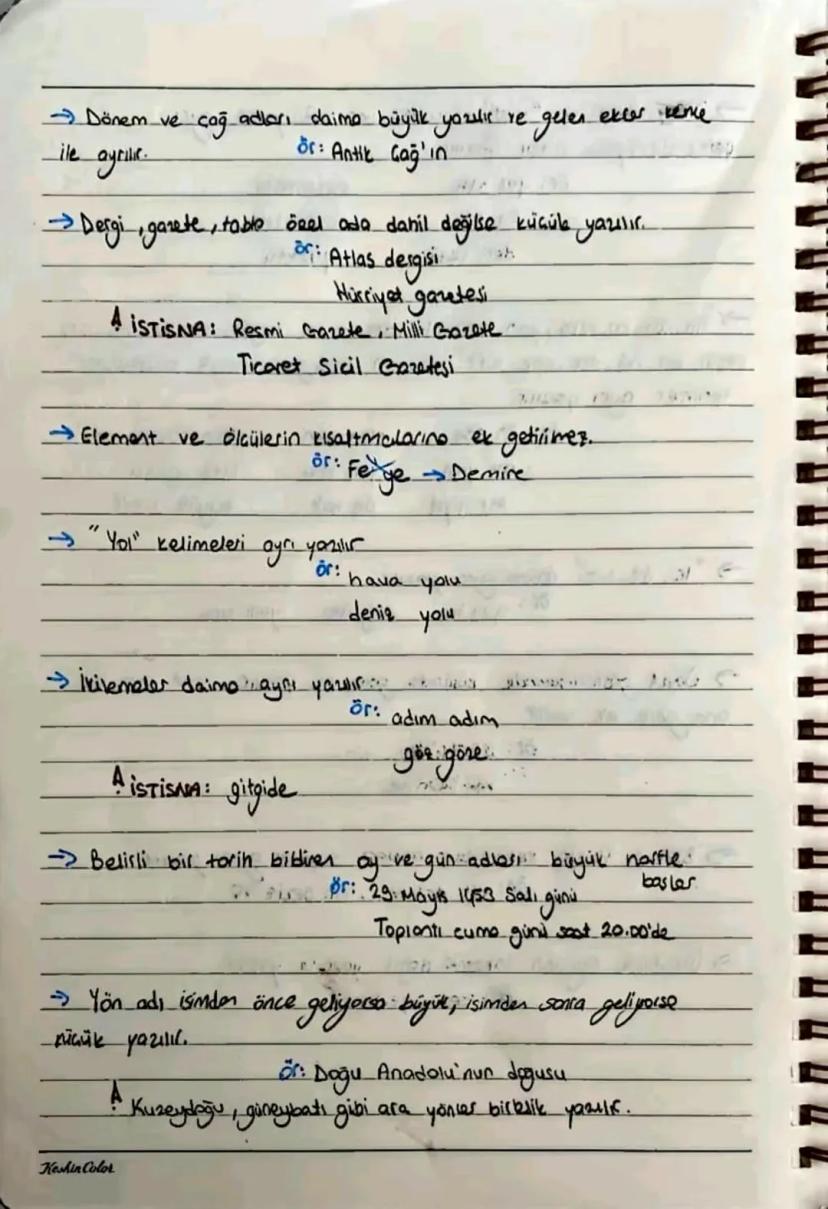 → Dönem ve çağ adları daima büyük yazılır ve gelen ekler kesme
ile ayrılır. ör: Antik Çağ'ın
→ Dergi, gazete, tablo özel ada dahil değilse küçük yazılır.
ör: Atlas dergisi
Hürriyet gazetesi
İSTİSNA: Resmi Gazete, Milli Gazete
Ticaret Sicil Gazetesi
→ Element ve ölçülerin kısaltmalarına ek getirilmez.
ör: Fe'ye → Demire
→ "Yol" kelimeleri ayrı yazılır
ör: hava yolu
deniz yolu
→ İkilemeler daima ayrı yazılır
ör: adım adım
göz göze
İSTİSNA: gitgide
→ Belirli bir tarih bildiren ay ve gün adları büyük harfle
başlar
ör: 29 Mayıs 1453 Salı günü
Toplantı cuma günü saat 20.00'de
→ Yön adı isimden önce geliyorsa büyük, isimden sonra geliyorsa
küçük yazılır.
ör: Doğu Anadolu'nun doğusu
Kuzeydoğu, güneybatı gibi ara yönler birleşik yazılır.
Keskin Color